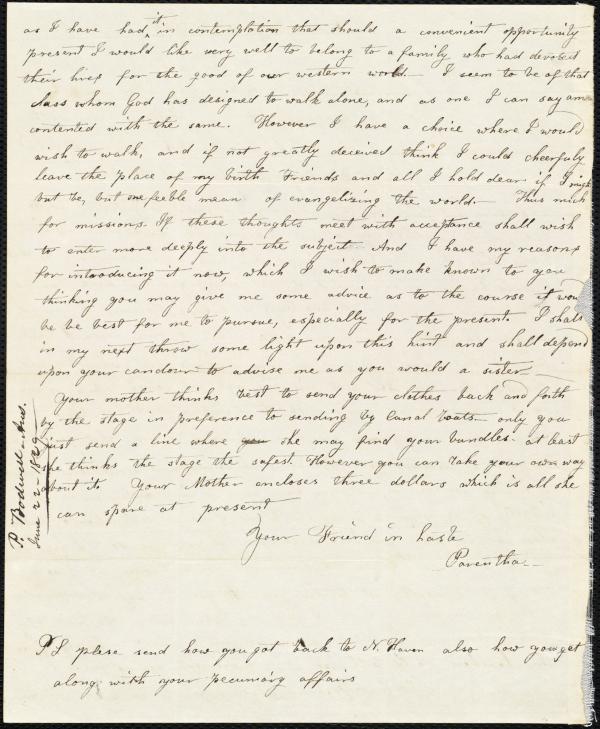 as I have had it in contemplation that should a convenient opportunity
present I would like very well to belong to a family who had devoted
their lives for the good of our western world. I seem to be of that
class whom God has designed to walk alone, and as one I can say am
contented with the same. However I have a choice where I would
wish to walk, and if not greatly deceived think I could cheerfuly
leave the place of my birth Friends and all I hold dear if I might
but be, but one feeble mean of evangelizing the world — Thus much
for missions. If these thoughts meet with acceptance shall wish
to enter more deeply into the subject. And I have my reasons
for introducing it now, which I wish to make known to you
thinking you may give me some advice as to the course it wou
be be best for me to pursue, especially for the present. I shall
in my next throw some light upon this hint and shall depend
upon your candour to advise me as you would a sister —
Your mother thinks best to send your clothes back and forth
by the stage in preference to sending by Canal boats — only you
just send a line where she may find your bundles. at least
she thinks the stage the safest. However you can take your own way
about it. Your Mother encloses three dollars which is all she
can spare at present
Your Friend in haste
Parentha —
P S please send how you got back to N. Haven also how you get
along with your pecuniary affairs
P. Bodwell — And.
June 22 — 1829 —